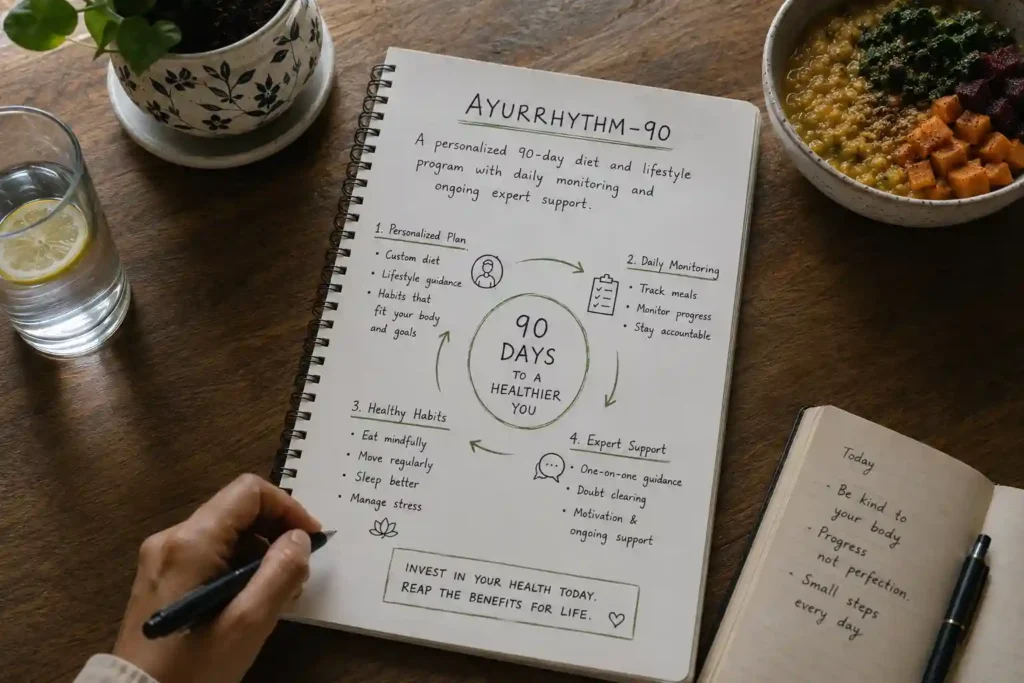 AYURRHYTHM-90
A personalized 90-day diet and lifestyle
program with daily monitoring and
ongoing expert support.
1. Personalized Plan
• Custom diet
• Lifestyle guidance
• Habits that
fit your body
and goals
2. Daily Monitoring
• Track meals
• Monitor progress
• Stay accountable
90
DAYS
TO A
HEALTHIER
YOU
3. Healthy Habits
• Eat mindfully
• Move regularly
• Sleep better
• Manage stress
4. Expert Support
• One-on-one guidance
• Doubt clearing
• Motivation &
ongoing support
INVEST IN YOUR HEALTH TODAY.
REAP THE BENEFITS FOR LIFE.
Today
- Be kind to
your body
• Progress
not perfection.
• Small steps
every day